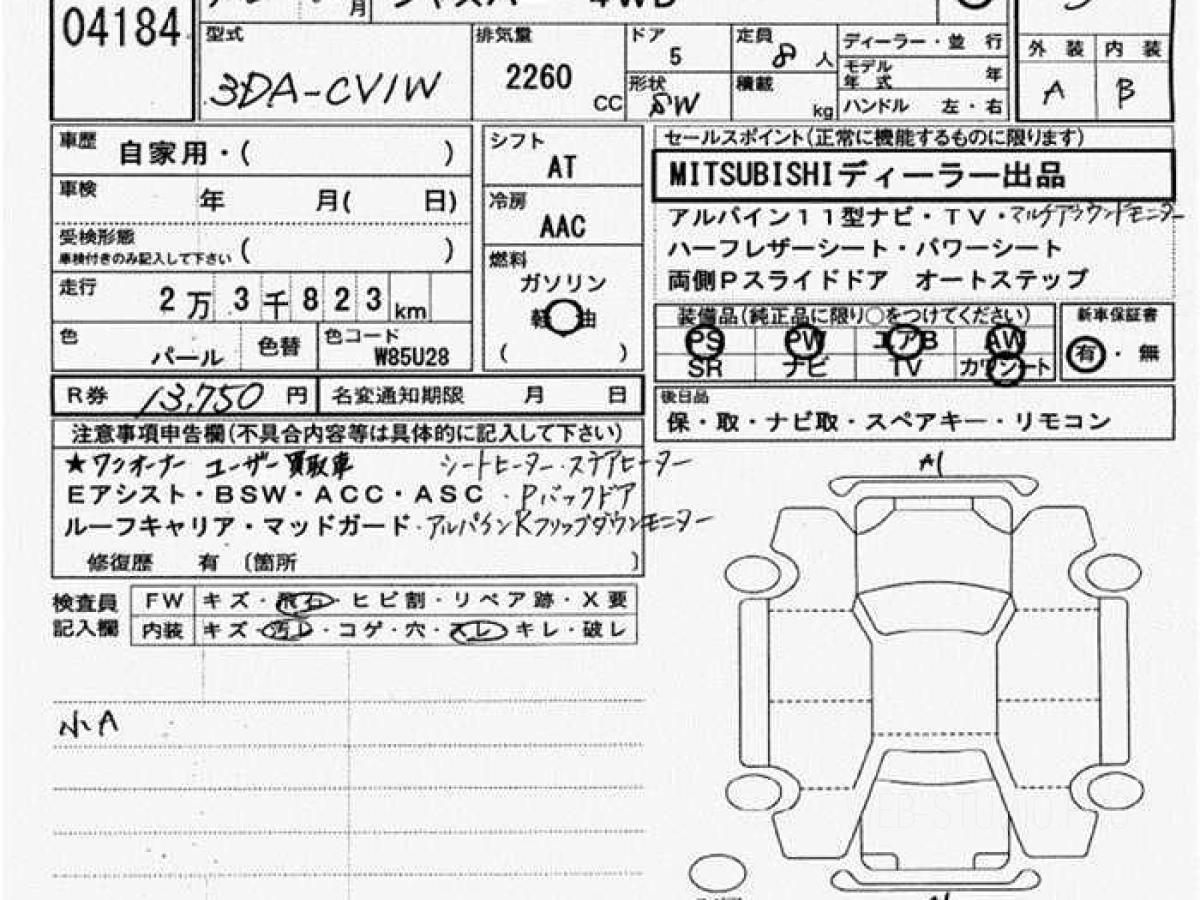 04184
月
4WD
型式
3DA-CV1W
排気量
2260
CC
ドア
5
形状
SW
定員
8 人
積載
kg
ディーラー・並 行
モデル年式 年
ハンドル 左・右
外 装 内 装
A B
車歴
自家用・( )
車検
年 月( 日)
受検形態
車検付きのみ記入して下さい ( )
走行
2万3千823km
色
パール
色替
色コード
W85U28
シフト
AT
冷房
AAC
燃料
ガソリン
軽 油
( )
セールスポイント(正常に機能するものに限ります)
MITSUBISHIディーラー出品
アルパイン11型ナビ・TV・マルチアラウンドモニター
ハーフレザーシート・パワーシート
両側Pスライドドア オートステップ
装備品(純正品に限り○をつけてください)
PS PW エアB AW
SR ナビ TV カワシート
新車保証書
有・無
R券 13,750 円 名変通知期限 月 日
後日品
保・取・ナビ取・スペアキー・リモコン
注意事項申告欄(不具合内容等は具体的に記入して下さい)
★ワンオーナー ユーザー買取車 シートヒーター・ステアヒーター
Eアシスト・BSW・ACC・ASC・Pバックドア
ルーフキャリア・マッドガード・アルパインRフリップダウンモニター
修復歴 有 〔箇所 〕
検査員
記入欄
FW キズ・飛石・ヒビ割・リペア跡・X要
内装 キズ・汚レ・コゲ・穴・スレ・キレ・破レ
小A
A1